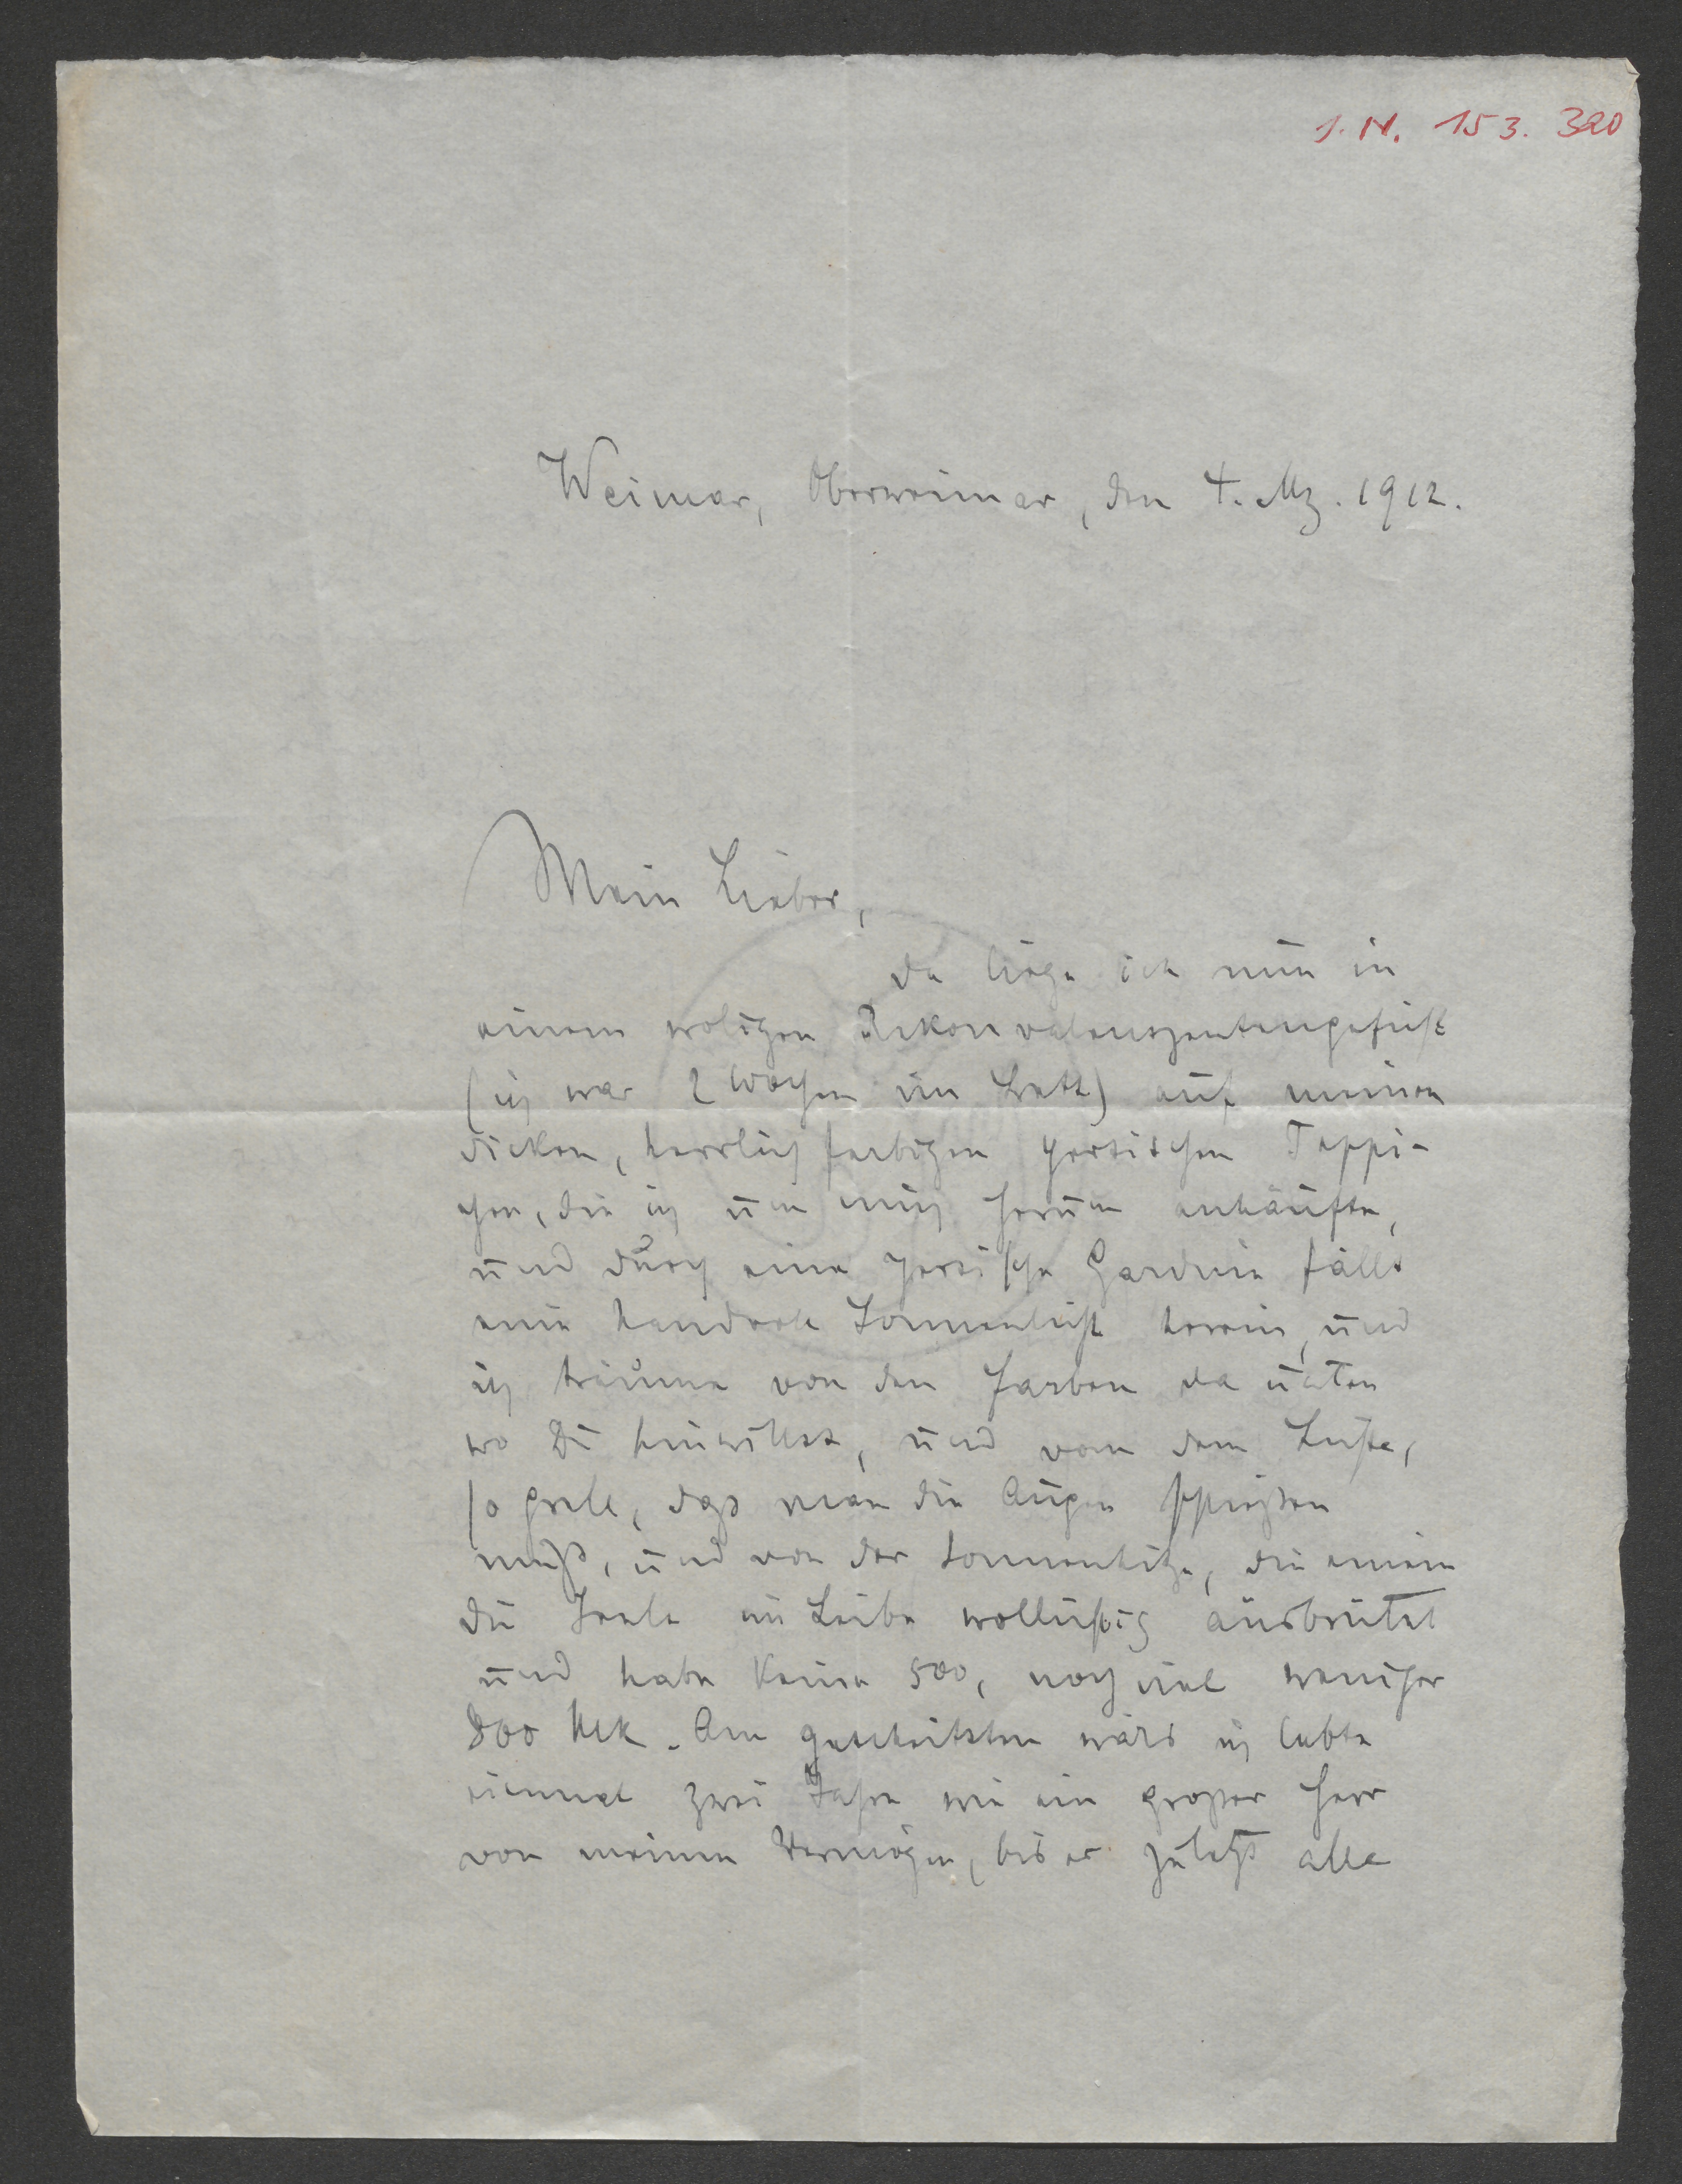 I. N. 153.320
Weimar, Oberweimar, den 4. Mz. 1912.
Mein Lieber,
da liege ich nun in
einem woligen Rekonvaleuszentengefühl
(ich war 2 Wochen im Bett) auf meinen
dicken, herrlich farbigen persischen Teppi-
chen, die ich um mich herum anhäufte,
und durch eine persische Gardine fällt
eine Sonnenlicht herein, und
ich träume von den Farben da unten
wo Du hinwillst, und von dem Lichte,
so grell, dass man die Augen schließen
muß, und von der Sonnenhitze, die einem
die Seele im Leibe wollüstig ausbrütet
und habe keine 500, noch viel weniger
800 Mk. Am gescheitsten wärs ich lebte
einmal zwei Jahre wie ein großer Herr
von meinem Vermögen, bis es zuletzt alle